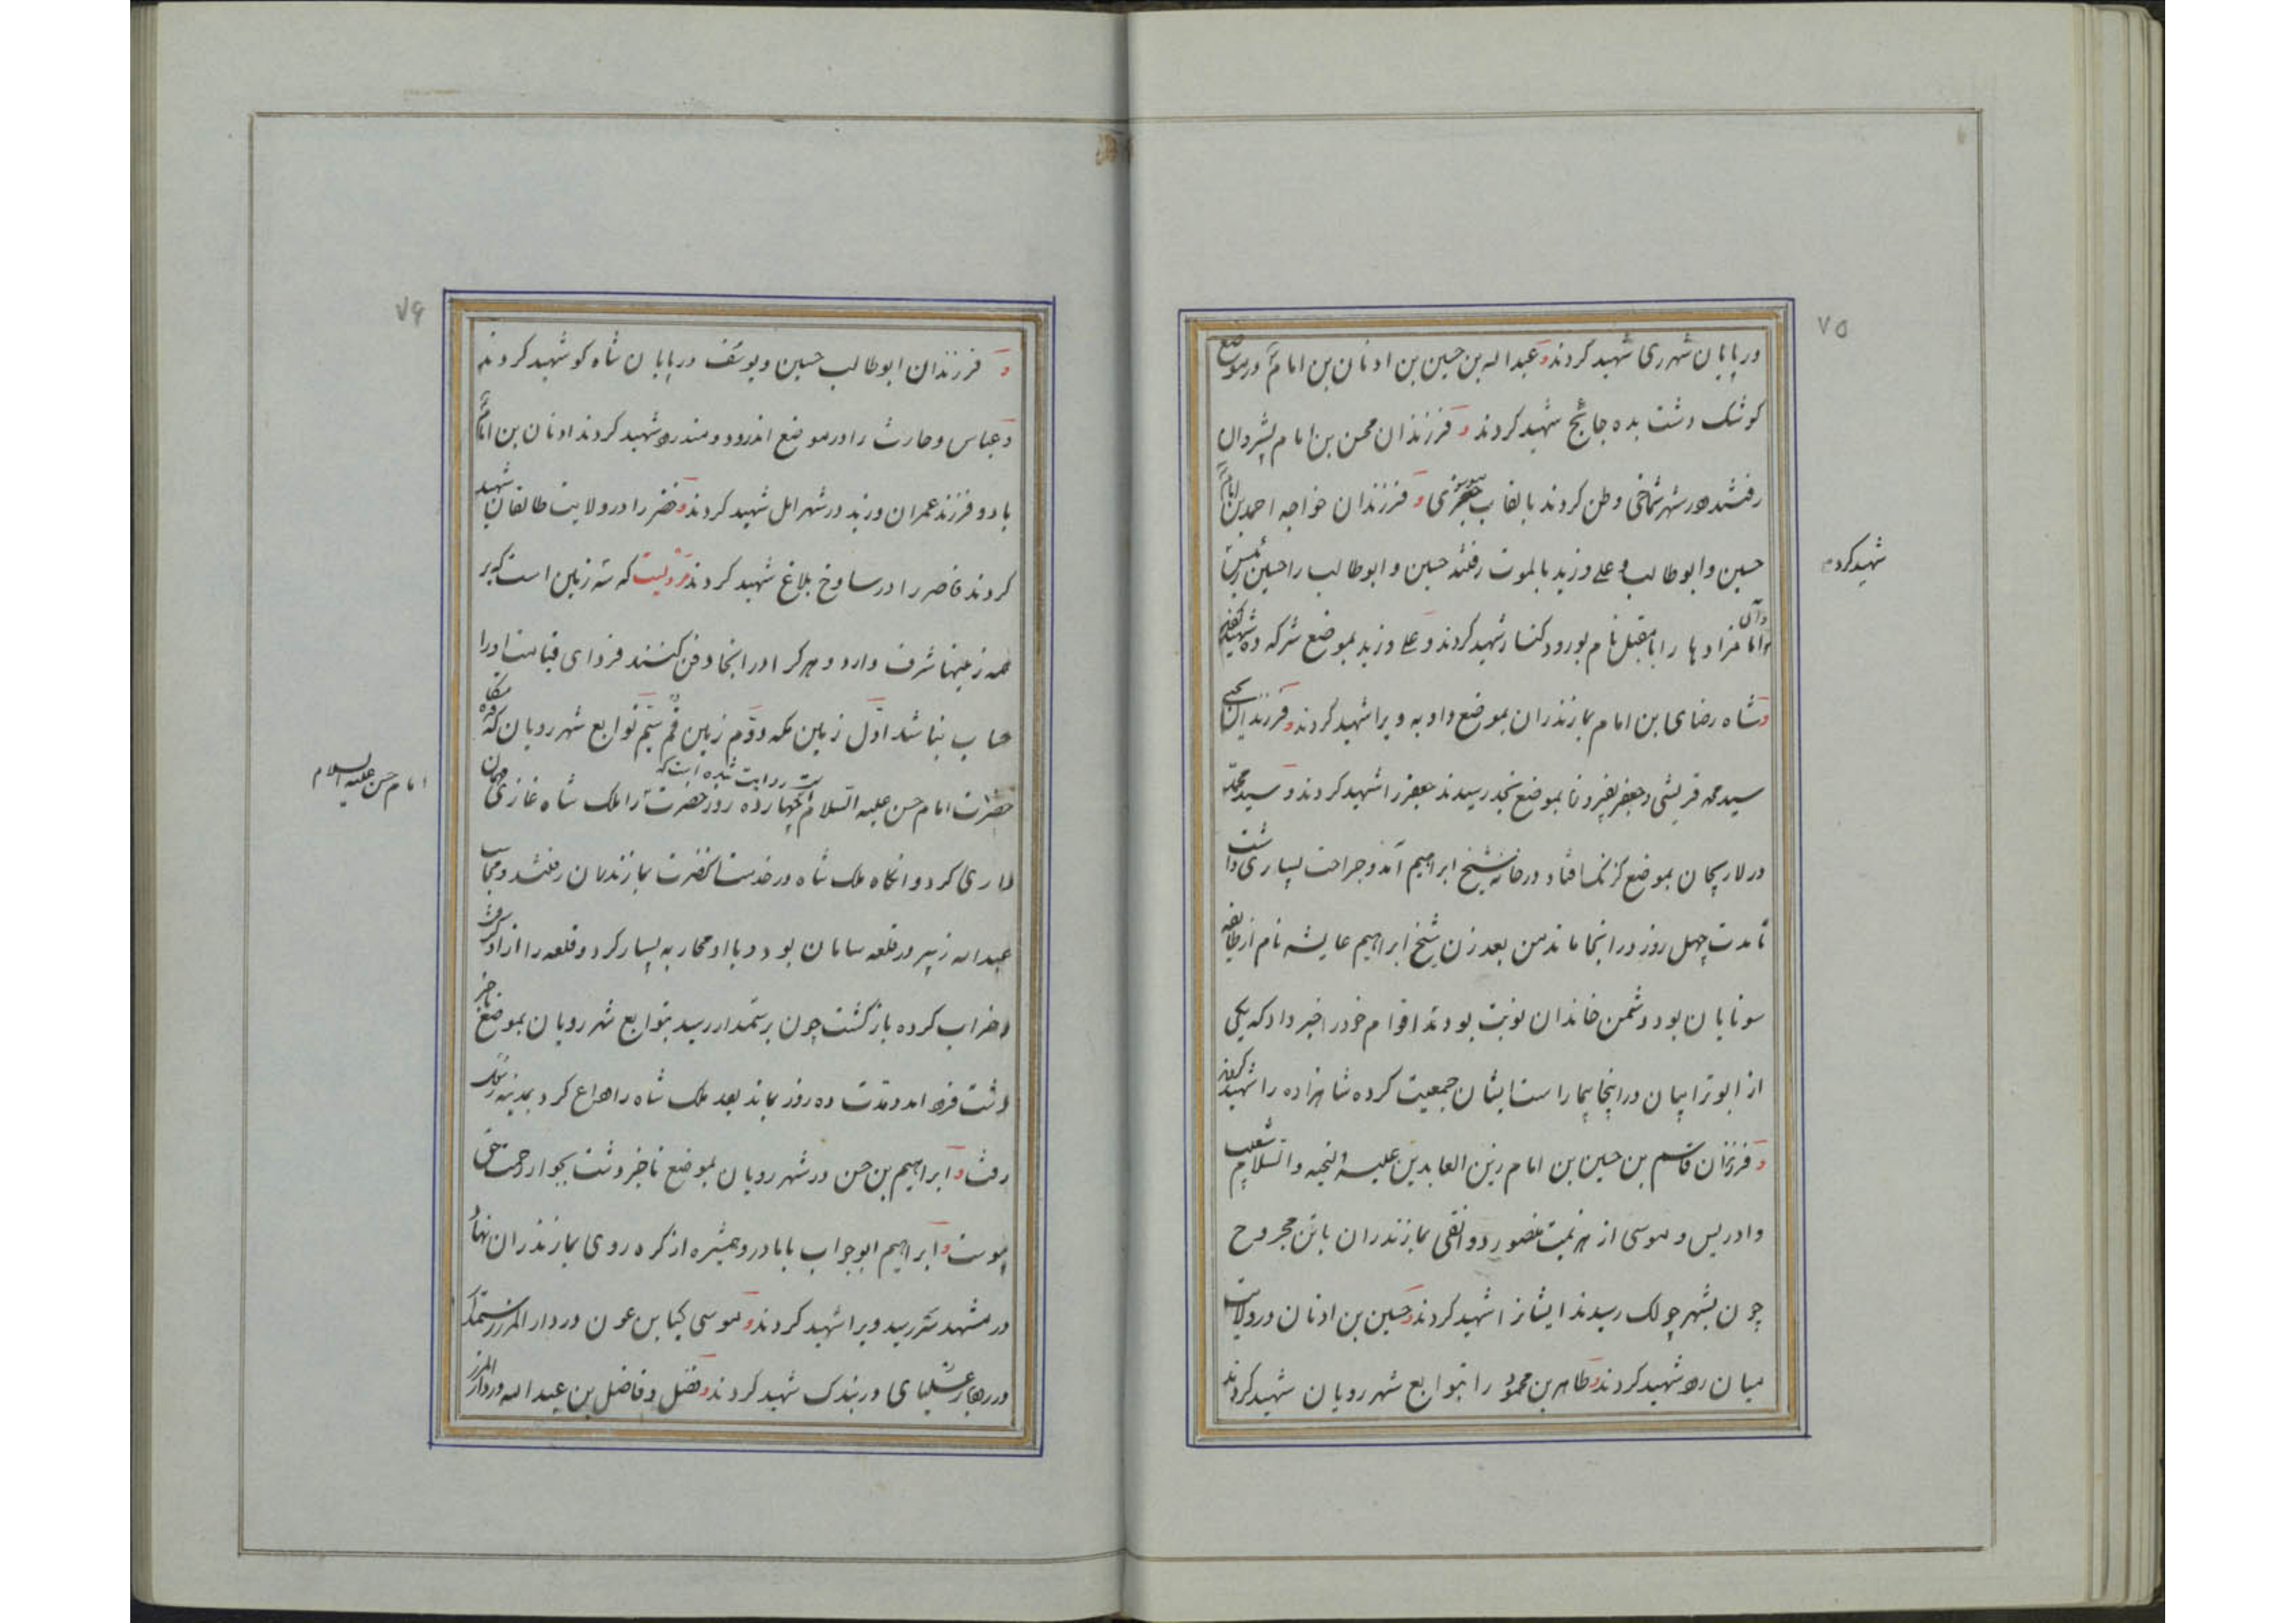 ۷۵
در پایان شهر ری شهید کردند و عبداله بن حسین بن ادنان بن امام در موضع
کوشک دشت بده جائج شهید کردند و فرزندان محسن بن امام بشیروان
رفتند در شهر شماخی وطن کردند بالقاب و فرزندان خواجه احمد بن امام
حسین و ابوطالب و علی و زید بالموت رفتند حسین و ابوطالب را حسین
شهید کرد
و آن
امامزادها را بمقبل نام بورود کنار شهید کردند و علی و زید بموضع شرکه ده شهید کردند
و شاه رضای بن امام بمازندران بموضع داوبه ویرا شهید کردند و فرزندان یحیی
سید محمد قریشی و جعفر بموضع نجد رسیدند جعفر را شهید کردند و سید محمد
در لاریجان بموضع کزنک افتاد در خانه شیخ ابراهیم آمد و جراحت بسیاری داشت
تا مدت چهل روز در انجا ماند من بعد زن شیخ ابراهیم عایشه نام از طایفه
سونایان بود دشمن خاندان نوبت بودند اقوام خود را خبر داد که یکی
از ابوترابیان در اینجا بیمار است ایشان جمعیت کرده شاهزاده را شهید کردند
و فرزندان قاسم بن حسین بن امام زین العابدین علیه التحیه والسلام شعیب
و ادریس و موسی از هزیمت منصور دوانقی بمازندران با تن مجروح
چون بشهر چولک رسیدند ایشانرا شهید کردند و حسین بن ادنان در ولایت
میان ره شهید کردند و طاهر بن محمود را بتوابع شهر رویان شهید کردند
۷۶
و فرزندان ابوطالب حسین و یوسف در پایان شاه کو شهید کردند
و عباس و حارث را در موضع اندرود و مندره شهید کردند ادنان بن امام
با دو فرزند عمران و زید در شهر امل شهید کردند و خضر را در ولایت طالقان شهید
کردند ناصر را در ساوخ بلاغ شهید کردند مرویست که سه زمین است که بر
همه زمینها شرف دارد و هر کرا در انجا دفن کنند فردای قیامت او را
حساب نباشد اول زمین مکه دوم زمین قم سیم توابع شهر رویان که
روایت شده است که
حضرت امام حسن علیه السلام چهارده روز حضرت را ملک شاه غازی مهمان
امام حسن علیه السلام
داری کرد و انگاه ملک شاه در خدمت انحضرت بمازندران رفتند و بجانب
عبداله زبیر در قلعه سامان بود و با او محاربه بسیار کرد و قلعه را از او گرفت
و خراب کرده بازگشت چون برستمدار رسید بتوابع شهر رویان بموضع ناخر
دشت فرود امد و مدت ده روز بماند بعد ملک شاه را وداع کرد بمدینه رسول
رفت و ابراهیم بن حسن در شهر رویان بموضع ناخر دشت بجوار رحمت حق
پیوست و ابراهیم ابوجواب با مادر و همشیره از کره روی بمازندران نهاد
در مشهد سر رسید ویرا شهید کردند و موسی کیا بن عون در دار المرز رستمدار
در بندک شهید کردند و فضل و فاضل بن عبداله در دار المرز